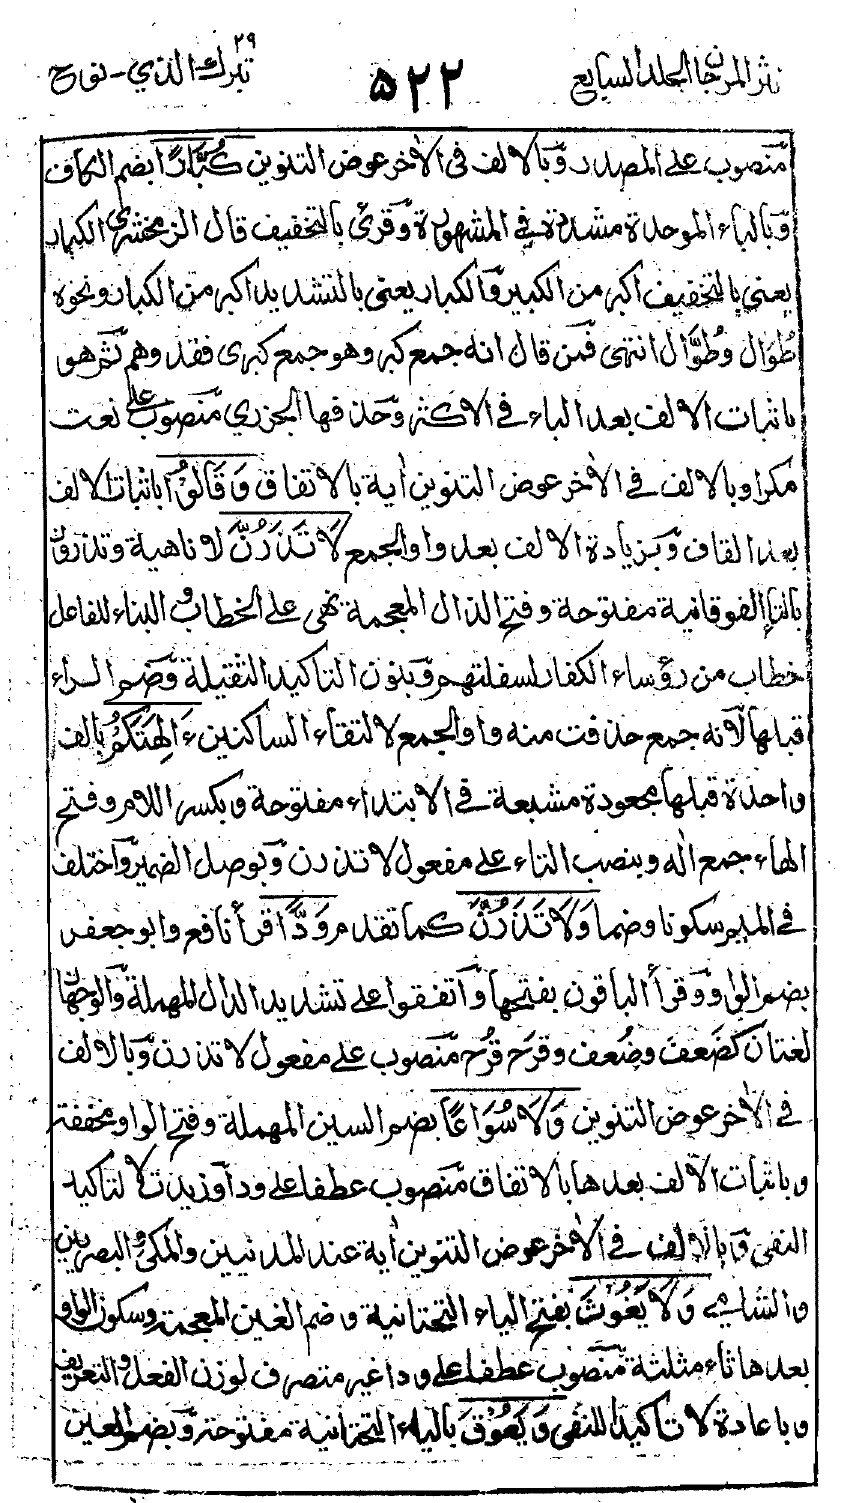 نثر المرجان الجلد السابع ۵۲۲ تبرك الذي - نوح ۲۹
منصوب على المصدر وبالالف فى الاخر عوض التنوين كُبَّارًا بضم الكاف
وبالباء الموحدة مشددة في المشهورة وقرئ بالتخفيف قال الزمخشري الكبار
يعنى بالتخفيف اكبر من الكبير والكبار يعنى بالتشديد اكبر من الكبار ونحوه
طُوَال وطُوَّال انتهى فمن قال انه جمع كبر وهو جمع كبرى فقد وهم ثم هو
باثبات الالف بعد الباء في الاكثر وحذفها الجزري منصوب على نعت
مكرا وبالالف في الاخر عوض التنوين اية بالاتفاق وَقَالُوْا باثبات الالف
بعد القاف وبزيادة الالف بعد واو الجمع لَا تَذَرُنَّ لا ناهية وتذرون
بالتاء الفوقانية مفتوحة وفتح الذال المعجمة نهى على الخطاب و البناء للفاعل
خطاب من رؤساء الكفار لسفلتهم وبنون التاكيد الثقيلة وضم الراء
قبلها لانه جمع حذفت منه واو الجمع لالتقاء الساكنين ءَالِهَتَكُمْ بالف
واحدة قبلها مجعودة مشبعة في الابتداء مفتوحة وبكسر اللام وفتح
الهاء جمع اله وبنصب التاء على مفعول لا تذرن وبوصل الضمير واختلف
في الميم سكونا وضما وَلَا تَذَرُنَّ كما تقدم وَدًّا قرأ نافع وابو جعفر
بضم الواو وقرأ الباقون بفتحها واتفقوا على تشديد الدال المهملة والوجهان
لغتان كضَعف وضُعف وقرَح قرُح منصوب على مفعول لا تذرن وبالالف
في الاخر عوض التنوين وَلَا سُوَاعًا بضم السين المهملة وفتح الواو مخففة
وباثبات الالف بعدها بالاتفاق منصوب عطفا على ودا وزيدت لا لتاكيد
النفى وبالالف في الاخر عوض التنوين اية عند المدنيين والمكى والبصريين
والشامي وَلَا يَغُوْثَ بفتح الياء التحتانية وضم الغين المعجمة وسكون الواو
بعدها ثاء مثلثة منصوب عطفا على ودا غير منصرف لوزن الفعل والتعريف
وباعادة لا تاكيدا للنفى وَيَعُوْقَ بالياء التحتانية مفتوحة وبضم العين